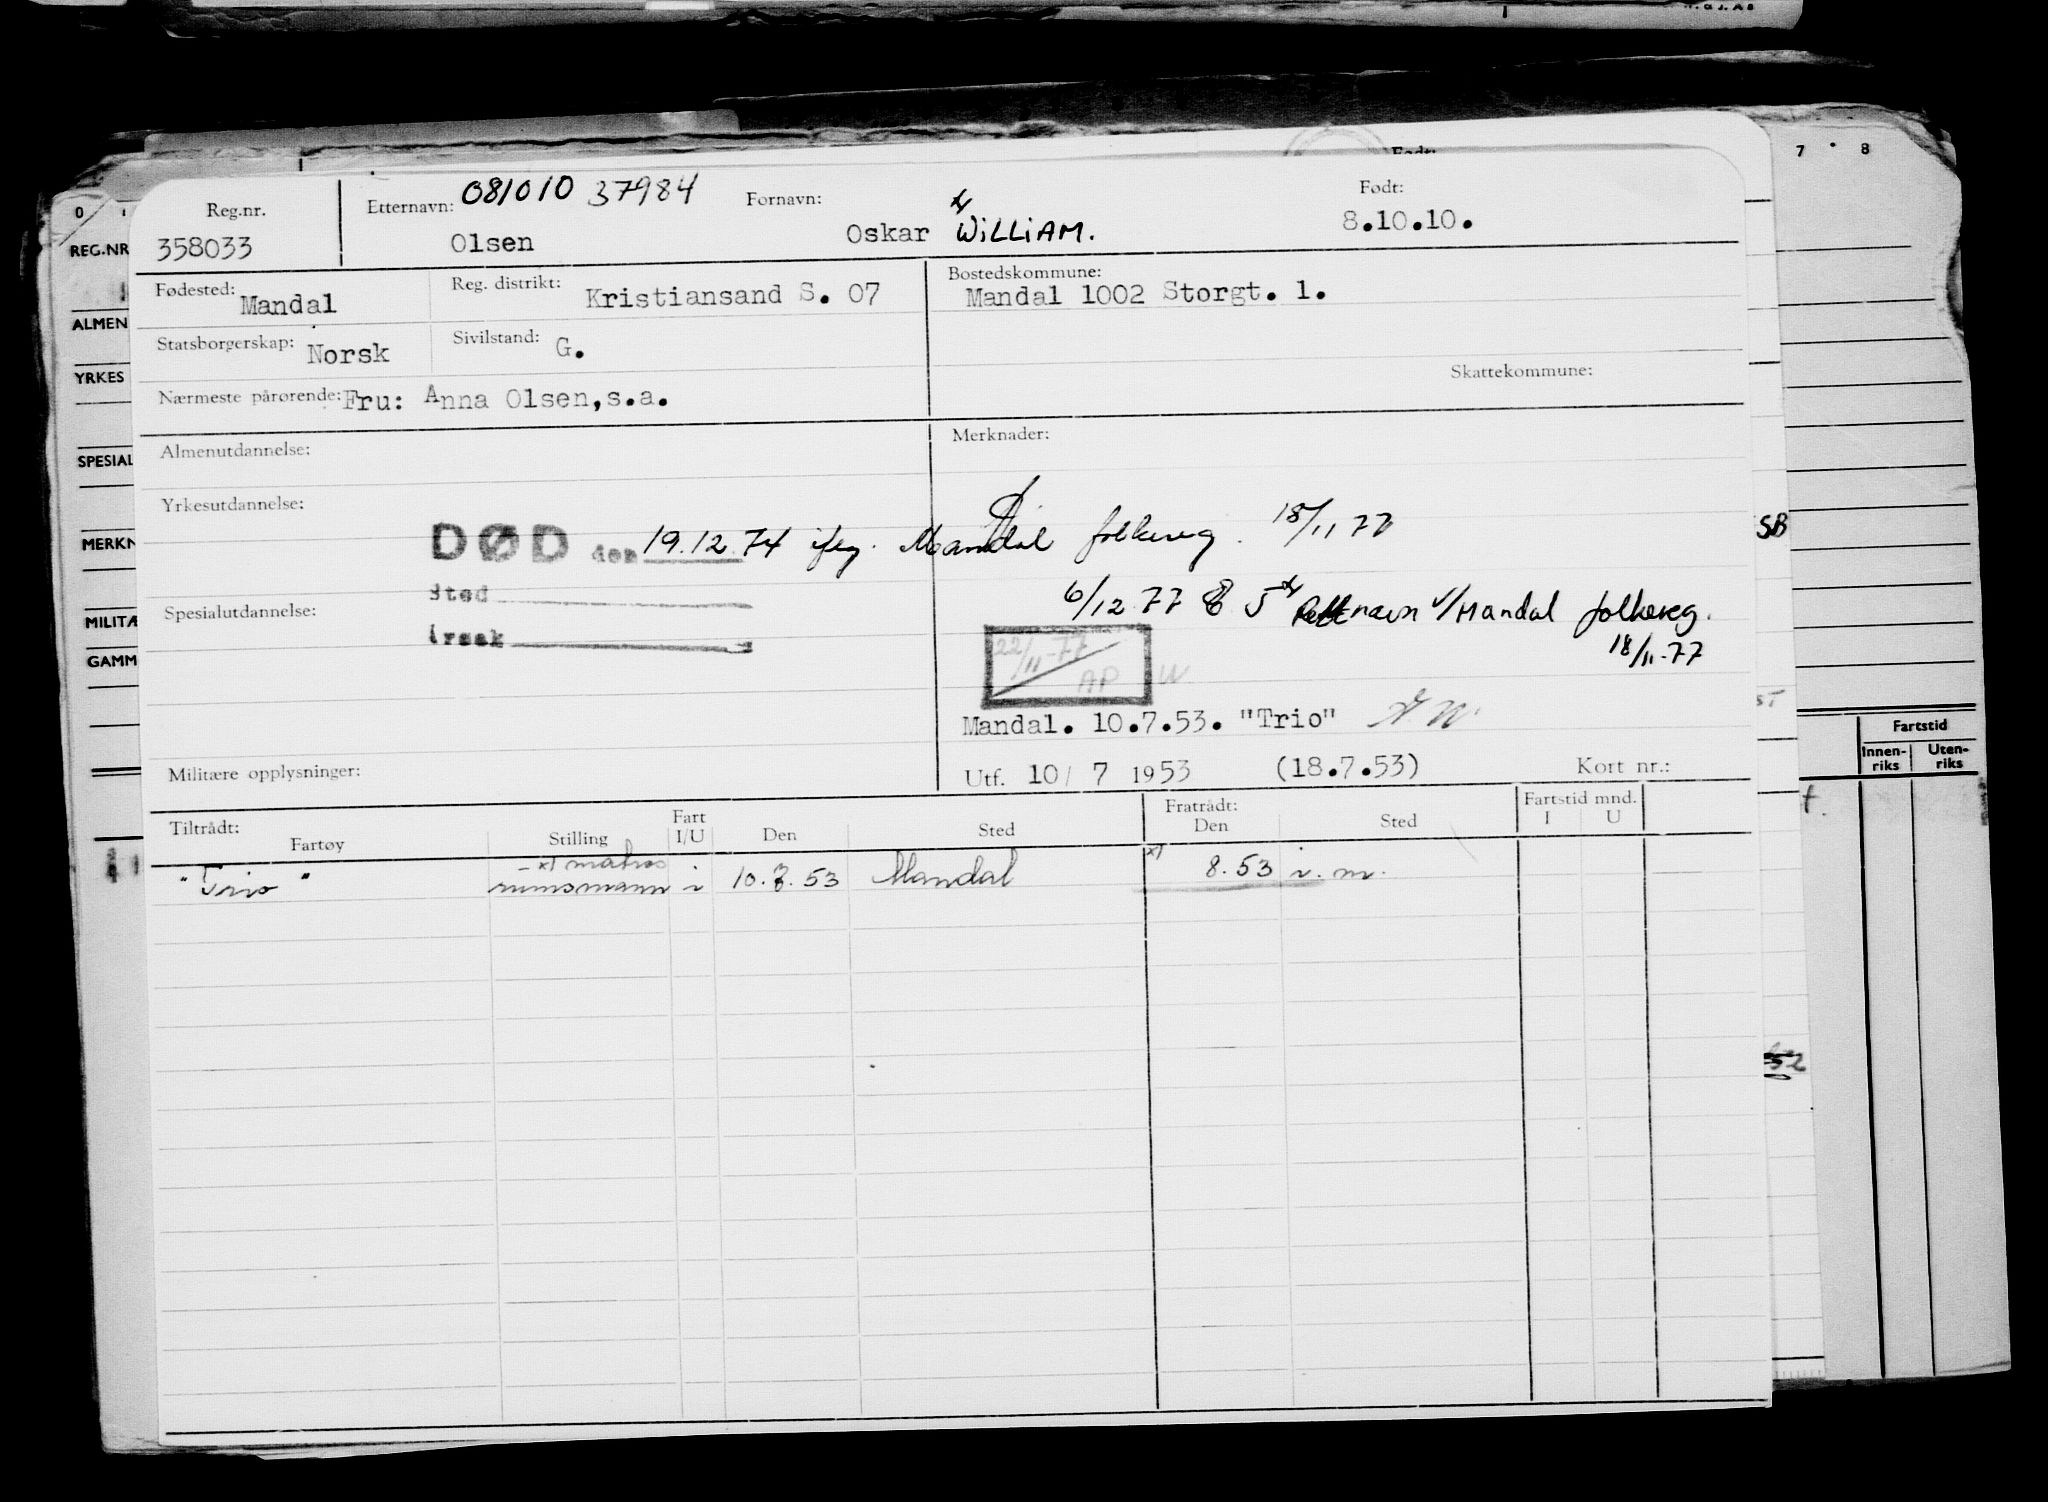 Reg.nr. Etternavn: 081010 37984 Fornavn: Født:
358033 Olsen Oskar x) WiLLiAM. 8.10.10.
Fødested: Mandal Reg. distrikt: Kristiansand S. 07 Bostedskommune: Mandal 1002 Storgt. 1.
Statsborgerskap: Norsk Sivilstand: G.
Skattekommune:
Nærmeste pårørende: Fru: Anna Olsen,s.a.
Almenutdannelse: Merknader:
Yrkesutdannelse:
DØD den 19.12.74 ifog. Mandal folkereg. 18/11 77
Sted
6/12 77 x) navn v/Mandal folkereg.
18/11-77
Spesialutdannelse:
Årsak
22/11-77
AP W
Mandal. 10.7.53. "Trio" A.W.
Militære opplysninger: Utf. 10/ 7 1953 (18.7.53) Kort nr.:
Tiltrådt: Fratrådt: Fartstid mnd.
Fartøy Stilling Fart I/U Den Sted Den Sted I U
- x) matros
"Trio" rumsmann i 10.7.53 Mandal x) 8.53 i.m.
REG.NR
ALMEN
YRKES
SPESIAL
MERKN
MILITÆ
GAMM
0
7 8
SB
ST
52
Fartstid
Innen-riks Uten-riks
Født: